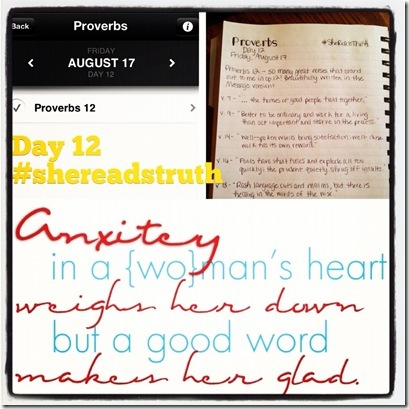 Back
Proverbs
FRIDAY
AUGUST 17
DAY 12
Proverbs 12
Proverbs
#SheReadsTruth
Day 12
Friday, August 17
Proverbs 12 - so many great verses that stand
out to me in ch 12! Beautifully written in the
Message version!
v. 7 - "... the homes of good people hold together."
v. 9 - "Better to be ordinary and work for a living
than act important and starve in the process."
v. 14 - "Well-spoken words bring satisfaction; well-done
work has its own reward."
v. 16 - "Fools have short fuses and explode all too
quickly; the prudent quietly shrug off insults."
v. 18 - "Rash language cuts and maims, but there is
healing in the words of the wise."
Day 12
#shereadstruth
Anxitey
in a {wo}man's heart
weighs her down
but a good word
makes her glad.